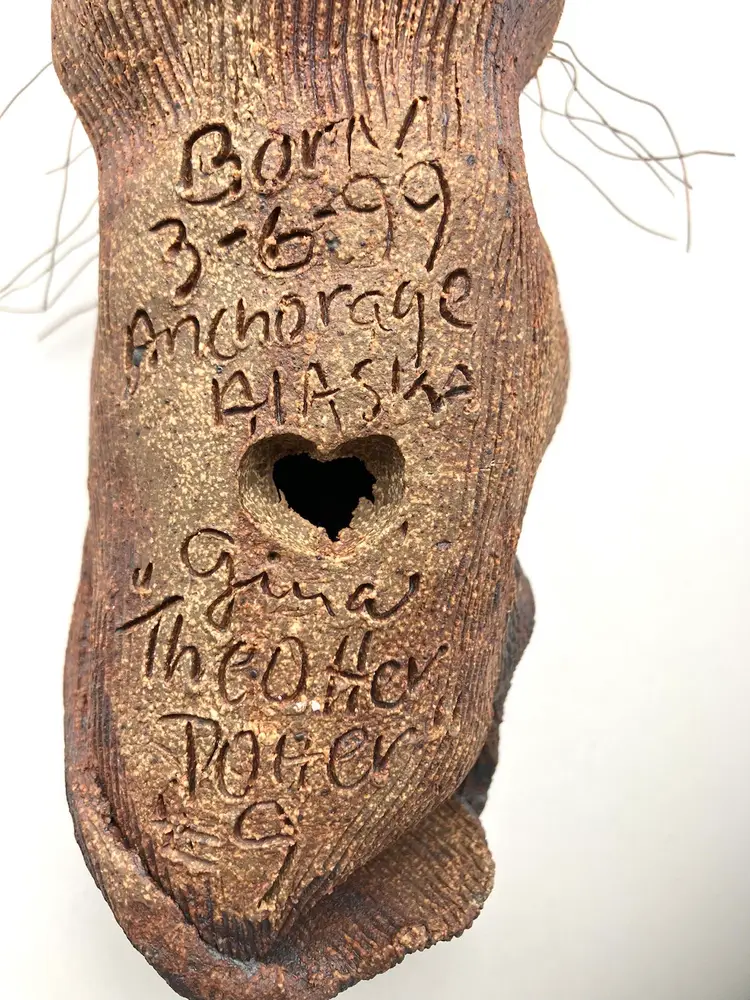 Born
3-6-99
Anchorage
AlASKA
Gina
"The Otter
Potter"
#9